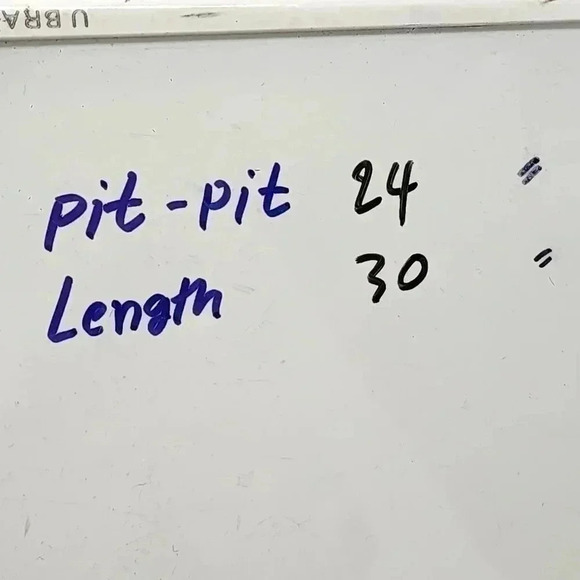 UBRA
pit-pit 24 "
Length 30 "